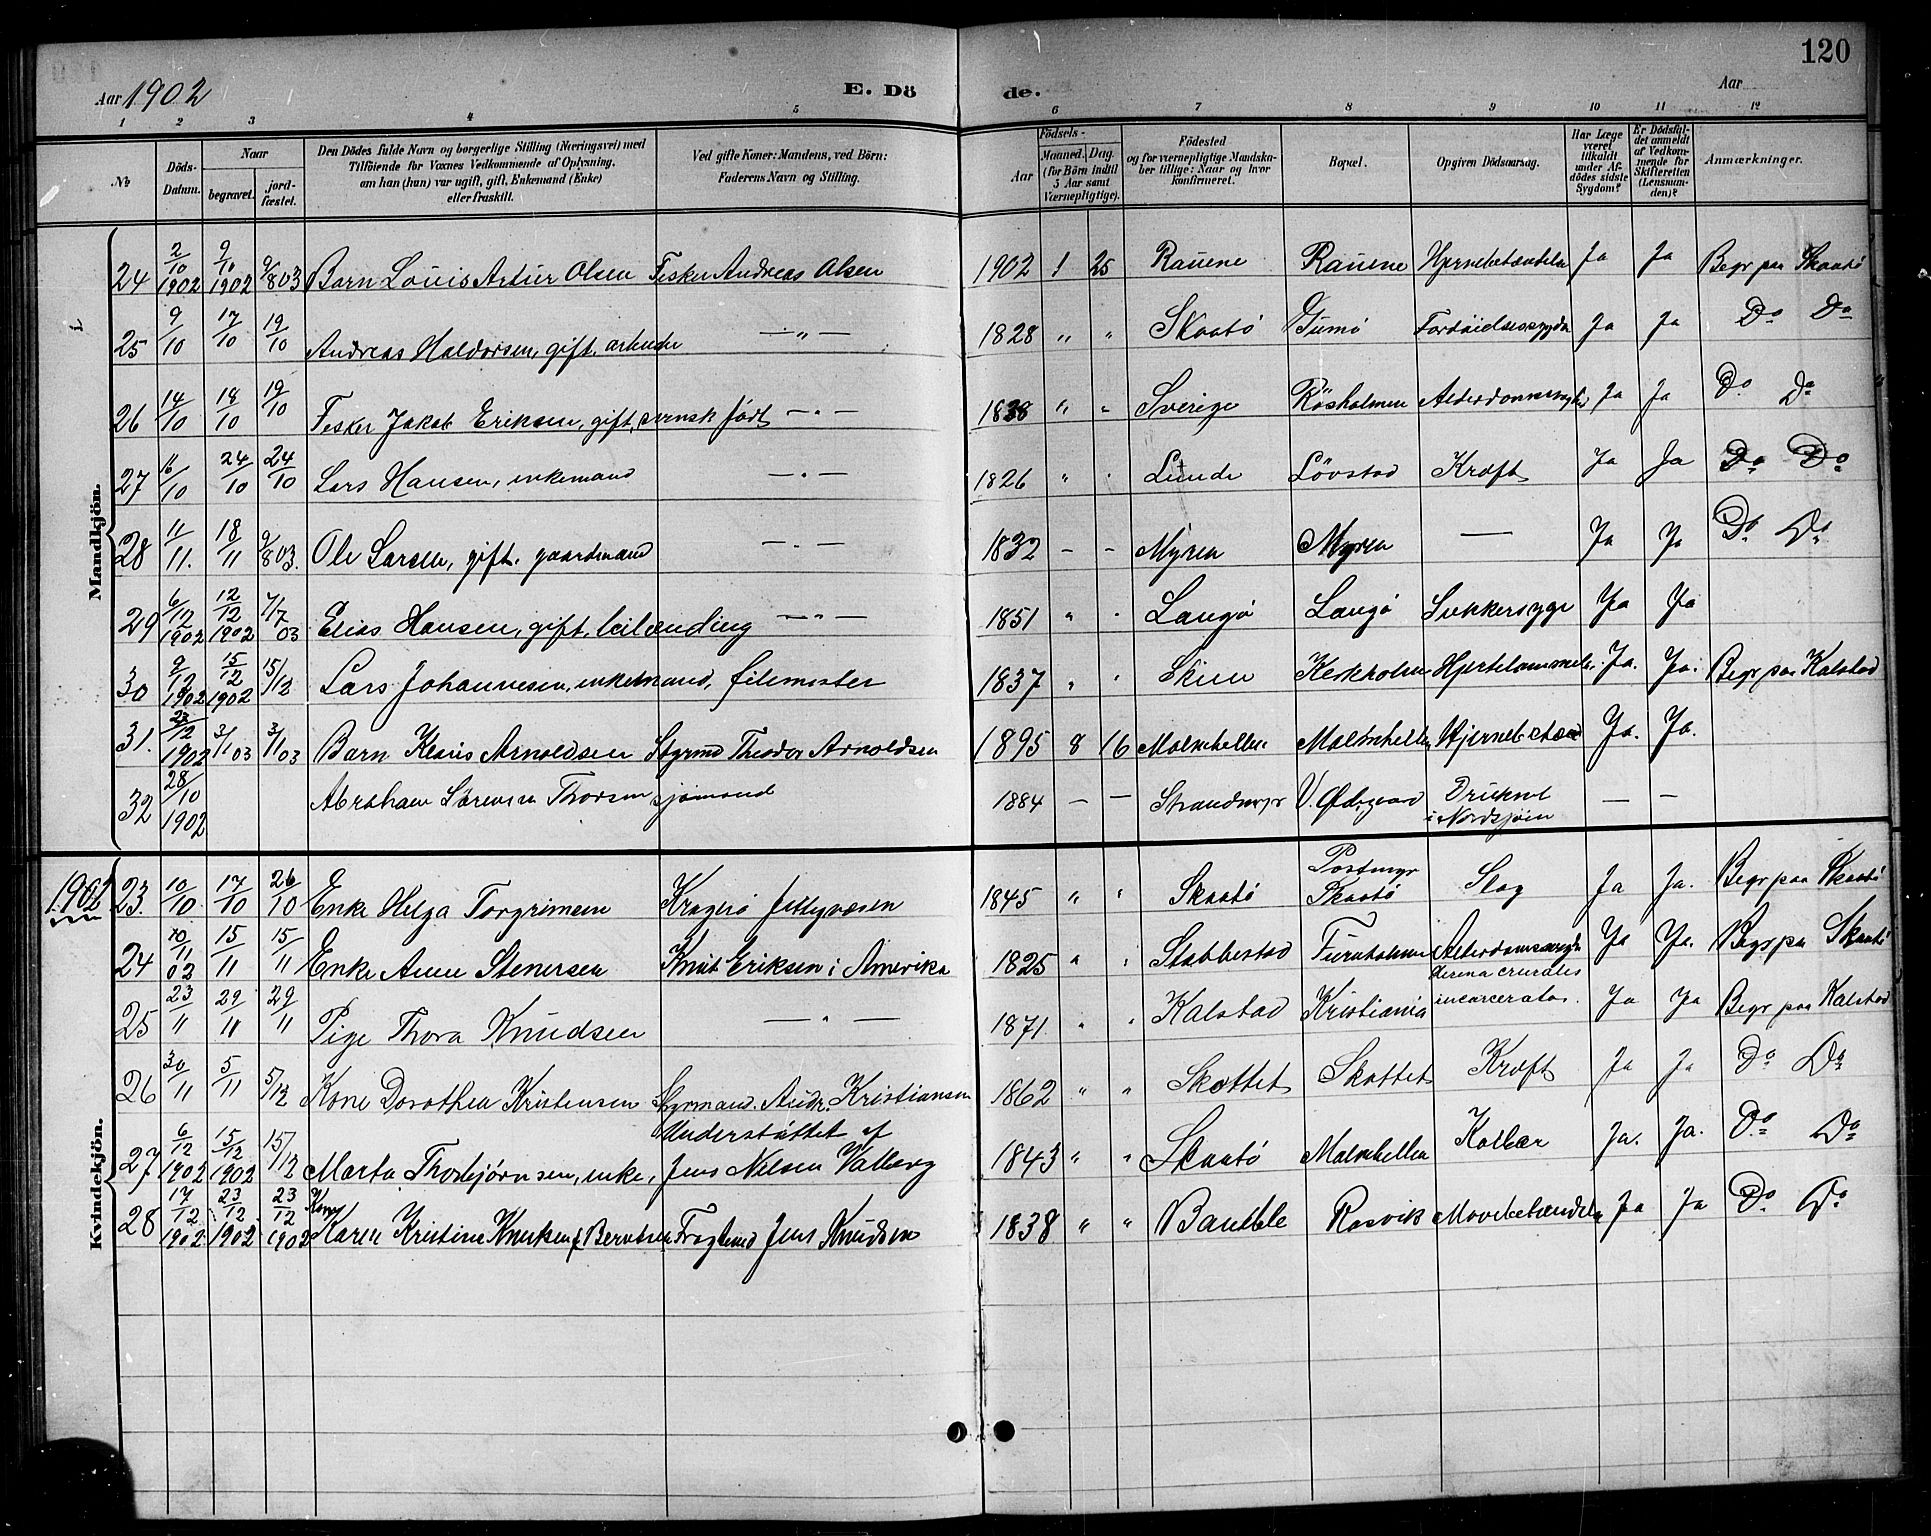 120
Aar 1902 E. Dö de. Aar
1 2 3 4 5 6 7 8 9 10 11 12
No Döds-Datum. Naar begravet. jord-fæstet. Den Dödes fulde Navn og borgerlige Stilling (Næringsvei) med Tilföiende for Voxnes Vedkommende af Oplysning, om han (hun) var ugift, gift, Enkemand (Enke) eller fraskilt. Ved gifte Koner: Mandens, ved Börn: Faderens Navn og Stilling. Födsels- Aar Maaned. Dag. (for Börn indtil 5 Aar samt Værnepligtige). Födested og for værnepligtige Mandska-ber tillige: Naar og hvor Konfirmeret. Bopæl. Opgiven Dödsaarsag. Har Læge været tilkaldt under Af-dödes sidste Sygdom? Er Dödsfal-det anmeldt af Vedkom-mende for Skifteretten (Lensman-den)? Anmærkninger.
Mandkjön.
24 2/10 1902 9/10 1902 9/8 03 Barn Louis Artur Olsen Fisker Andreas Olsen 1902 1 25 Rauene Rauene Hjernebetændelse Ja Ja Begr paa Skaatö
25 9/10 17/10 19/10 Andreas Haldorsen, gift. arbeider — " — 1828 " " Skaatö Gumö Fordöielsessygdom Ja Ja Do Do
26 14/10 18/10 19/10 Fisker Jakob Eriksen, gift, svensk födt — " — 1838 " " Sverige Rösholmen Alderdomssygdom Ja Ja Do Do
27 16/10 24/10 24/10 Lars Hansen, enkemand — " — 1826 " " Lunde Lövstad Kræft Ja Ja Do Do
28 11/11. 18/11 9/8 03. Ole Larsen, gift. gaardmand — " — 1832 - - Myren Myren — Ja Ja Do Do
29 6/12 1902 12/12 1902 7/7 03 Elias Hansen, gift, leilænding — " — 1851 " " Langö Langö Sukkersyge Ja Ja
30 9/12 1902 15/12 1902 15/12 Lars Johannesen, enkemand, filemester 1837 " " Skien Kirkholmen Hjertelammelse Ja. Ja. Begr paa Kalstad
31. 23/12 1902 3/1 03 3/1 03 Barn Klaris Arnoldsen Styrmd Theodor Arnoldsen 1895 8 16 Malmhellen Malmhellen Hjernebetænd Ja. Ja.
32 28/10 1902 Abraham Sörensen Thorsen sjömand 1884 — — Strandmyr V. Ødegaard Druknet i Nordsjöen — —
Kvindekjön.
1902 23. 10/10 17/10 26/10 Enke Helga Torgrimsen Kragerö fattigvæsen 1845 " " Skaatö Postmyr Skaatö Slag Ja Ja. Begr paa Skaatö
24 10/11 02 15/11 15/11 Enke Anne Stenersen Knut Eriksen i Amerika 1825 " " Stabbestad Furuholmen Alderdomssvaghed Ja Ja. Begr paa Skaatö
25 23/11 29/11 29/11 Pige Thora Knudsen — " — 1871. " " Kalstad Kristiania cruralis incarcerata. Ja Ja Begr paa Kalstad
26 30/11 5/11 5/12 Kone Dorothea Kristensen Styrmand. Andr. Kristiansen 1862 " " Skottet Skottet Kræft Ja Ja Do Do
27 6/12 1902 15/12 1902 15/12 Marta Thorbjörnsen, enke, Understöttet af Jens Nilsen Valberg 1843 " " Skaatö Malmhellen Kolbær Ja. Ja. Do Do
28 17/12 1902 23/12 1902 23/12 1902 Kone Karen Kristine Knudsen f Berntsen Fragtemd Jens Knudsen 1838 " " Bamble Rosvik Mavebetændelse Ja Ja Do Do